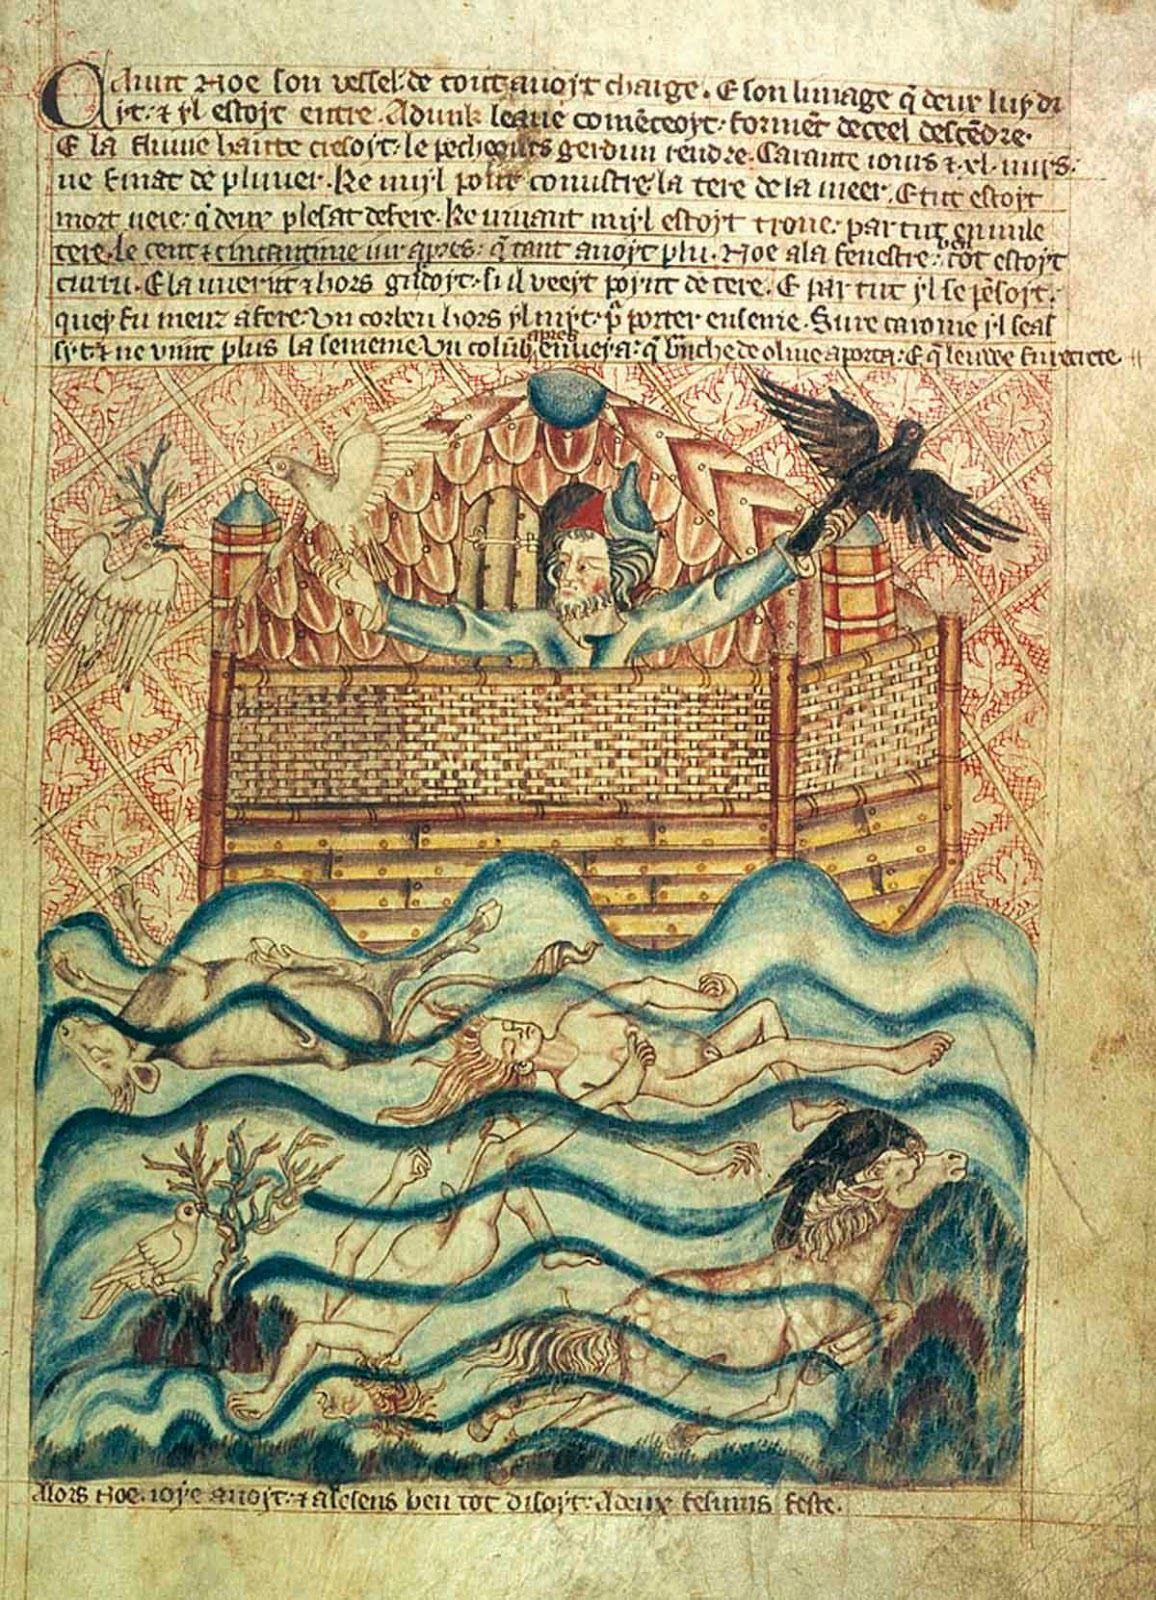 Qaunt Noe son vessel de tout avoyt charge. E son linnage q deux luy di
yt. & yl estoyt entre. Adunk leaue comẽceoyt. formẽt de ceel descẽdre.
E la fluuie haute cresoyt. le pecheours gerdun rendre. Carante iours & xl. nuis.
ne finat de pluuer. Ke nuyl pout conustre la tere de la meer. E tut estoyt
mort ueie. q deux plesat de fere. Ke uiuant nuyl estoyt troue. par tut en nule
tere. Le cent & cincantime iur apres. q tant auoyt plu. Noe ala fenestre. tot estoyt
E la uuerit & hors gardoyt. si il veeyt poynt de tere. E par tut yl se pẽsoyt.
quey fu meuz a fere. Un corbeu hors yl myt. p porter enseme. Sure caronie yl seas
syt. & ne vint plus la sememe Un colũb apres enueya. q brãche de oliue aporta. E q leuwe fu retrete
Alors Noe. ioye auoyt. & a ses ens ben tot disoyt. A deux fesums feste.